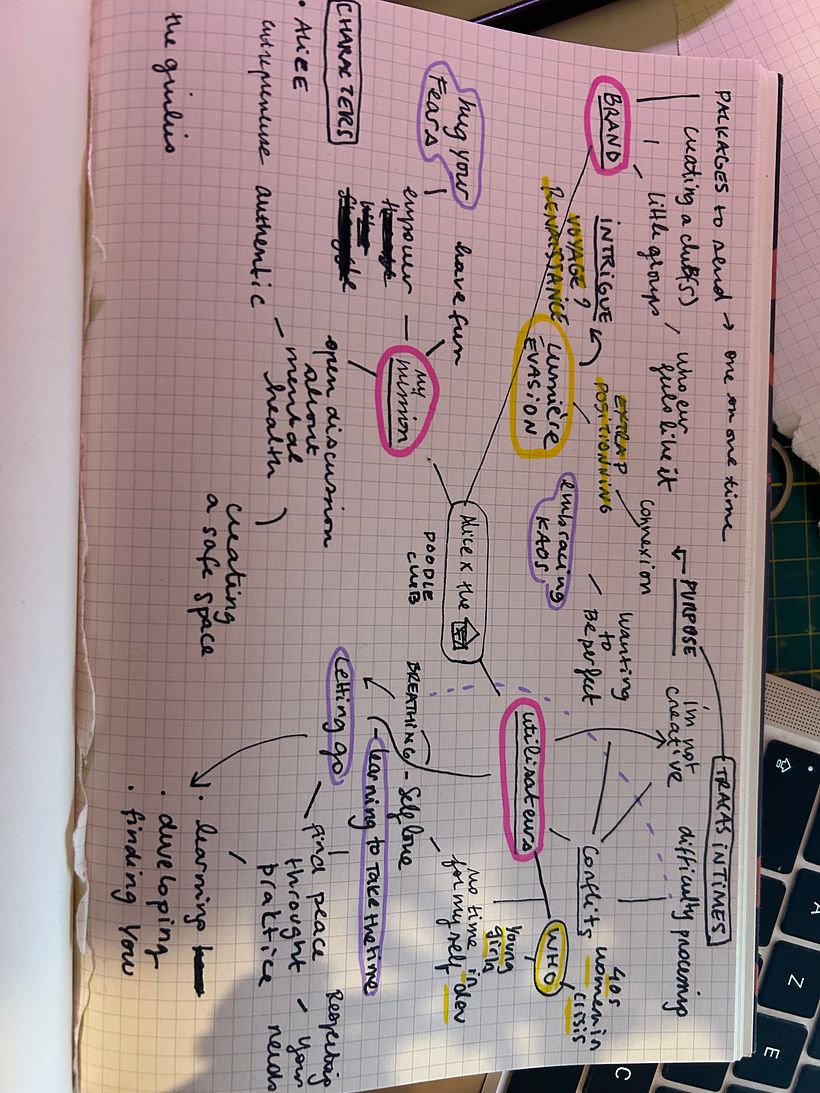 PACKAGES to send → one on one time
creating a club(s) / who ever
feels like it
little groups
BRAND
INTRIGUE
VOYAGE ?
RENAISSANCE
EXTRAP
POSITIONNING
LUMIÈRE
ÉVASION
connexion
← PURPOSE
TRACAS INTIMES
I'm not
creative
difficulty processing
wanting
to
Be perfect
embracing
KAOS
hug your
fears
have fun
empower
my
mission
open discussion
about
mental
health
Alice x the
POODLE
CLUB
utilisateurs
Conflits
WHO
40s
women in
crisis
young
girls
no time in dev
for my self
BREATHING - Self love
- learning to take the time
Letting go
find peace
throught
practice
Respecting
your
needs
CHARACTERS
• ALICE
entrepreneuse authentic
creating
a safe space
the
• learning
• developing
• finding you
A
Z
E
C